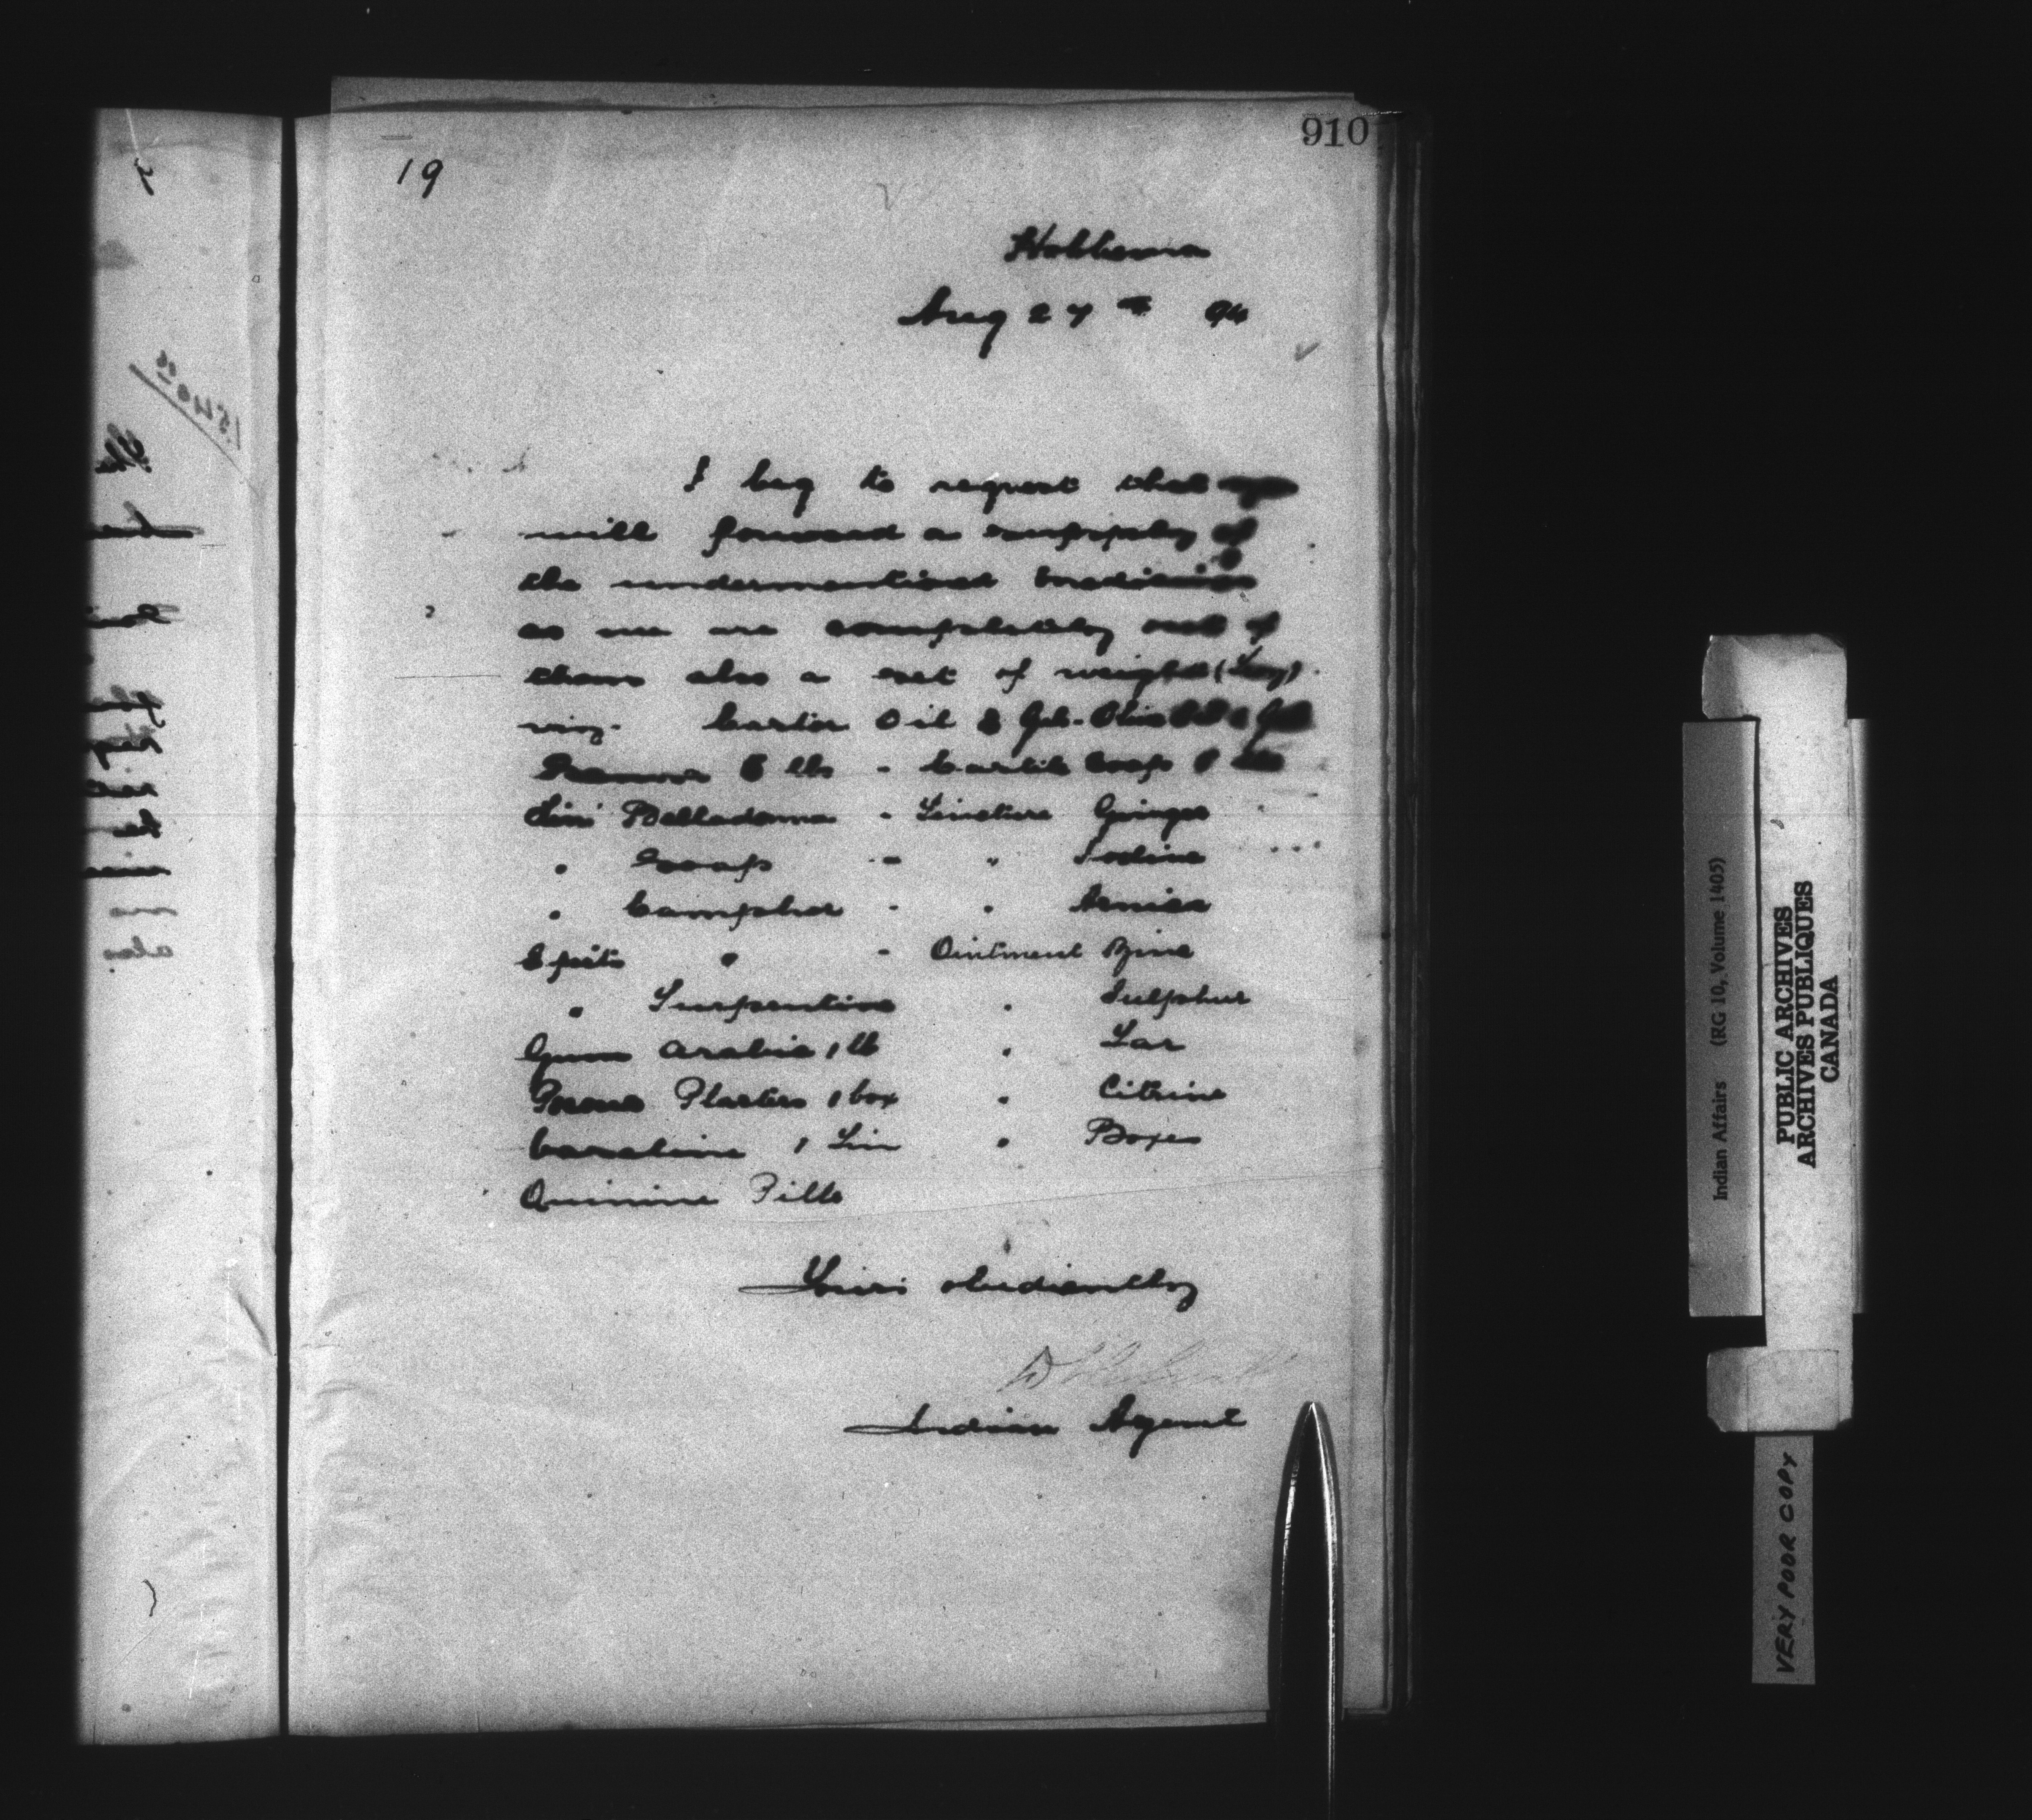 910
19
Hobbema
Aug 27th 94
I beg to request that you
will forward a supply of
the undermentioned medicines
as we are completely out of
them also a set of weights
viz. Castor Oil 2 Gal - Olive Oil 1 Gal
Senna 6 lbs - Castile Soap
Lini Belladonna - Tincture Ginger
" Soap - " Iodine
" Camphor - " Arnica
Spirits " - Ointment Zinc
" Turpentine " Sulphur
Gum Arabic 1 lb " Tar
Porous Plasters 1 box " Citrine
Vaseline 1 Tin " Boxes
Quinine Pills
Yours obediently
Indian Agent
Indian Affairs (RG 10, Volume 1405)
PUBLIC ARCHIVES
ARCHIVES PUBLIQUES
CANADA
VERY POOR COPY